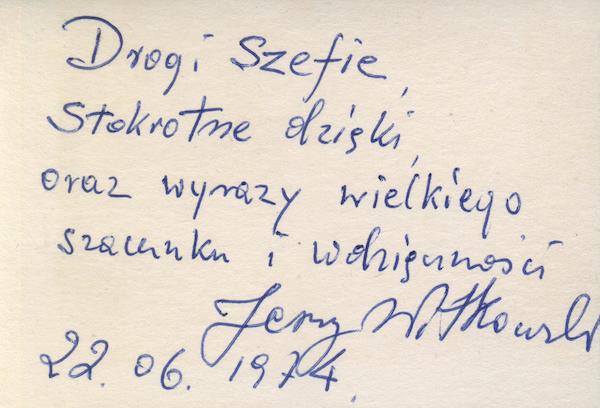 Drogi Szefie,
Stokrotne dzięki,
oraz wyrazy wielkiego
szacunku i wdzięczności
Jerzy Witkowski
22. 06. 1974.